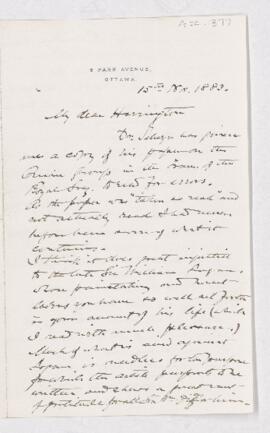 9 PARK AVENUE,
OTTAWA.
15th Nov. 1883.
My dear Harrington
Dr. Selwyn has given
me a copy of his paper on the
Quebec group in the Trans. of the
Royal Soc. to read for errors.
As the paper was "taken as read" and
not actually read I had never
before been aware of what it
contains.
I think it does great injustice
to the late Sir William Logan
whose painstaking and
labors you have so well set forth
in your account of his life (which
I read with much pleasure.)
Much of what is said against
Logan is needless for the purpose
for which the article purports to be
written and shows a great want
of gratitude for all Sir Wm. did for him.